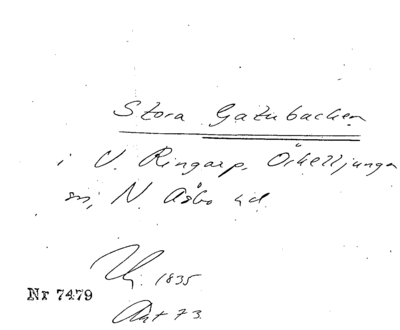 Stora Gatubacken
i V. Ringarp, Örkelljunga
sn, N. Åsbo hd
1835
Nr 7479
Akt 73.